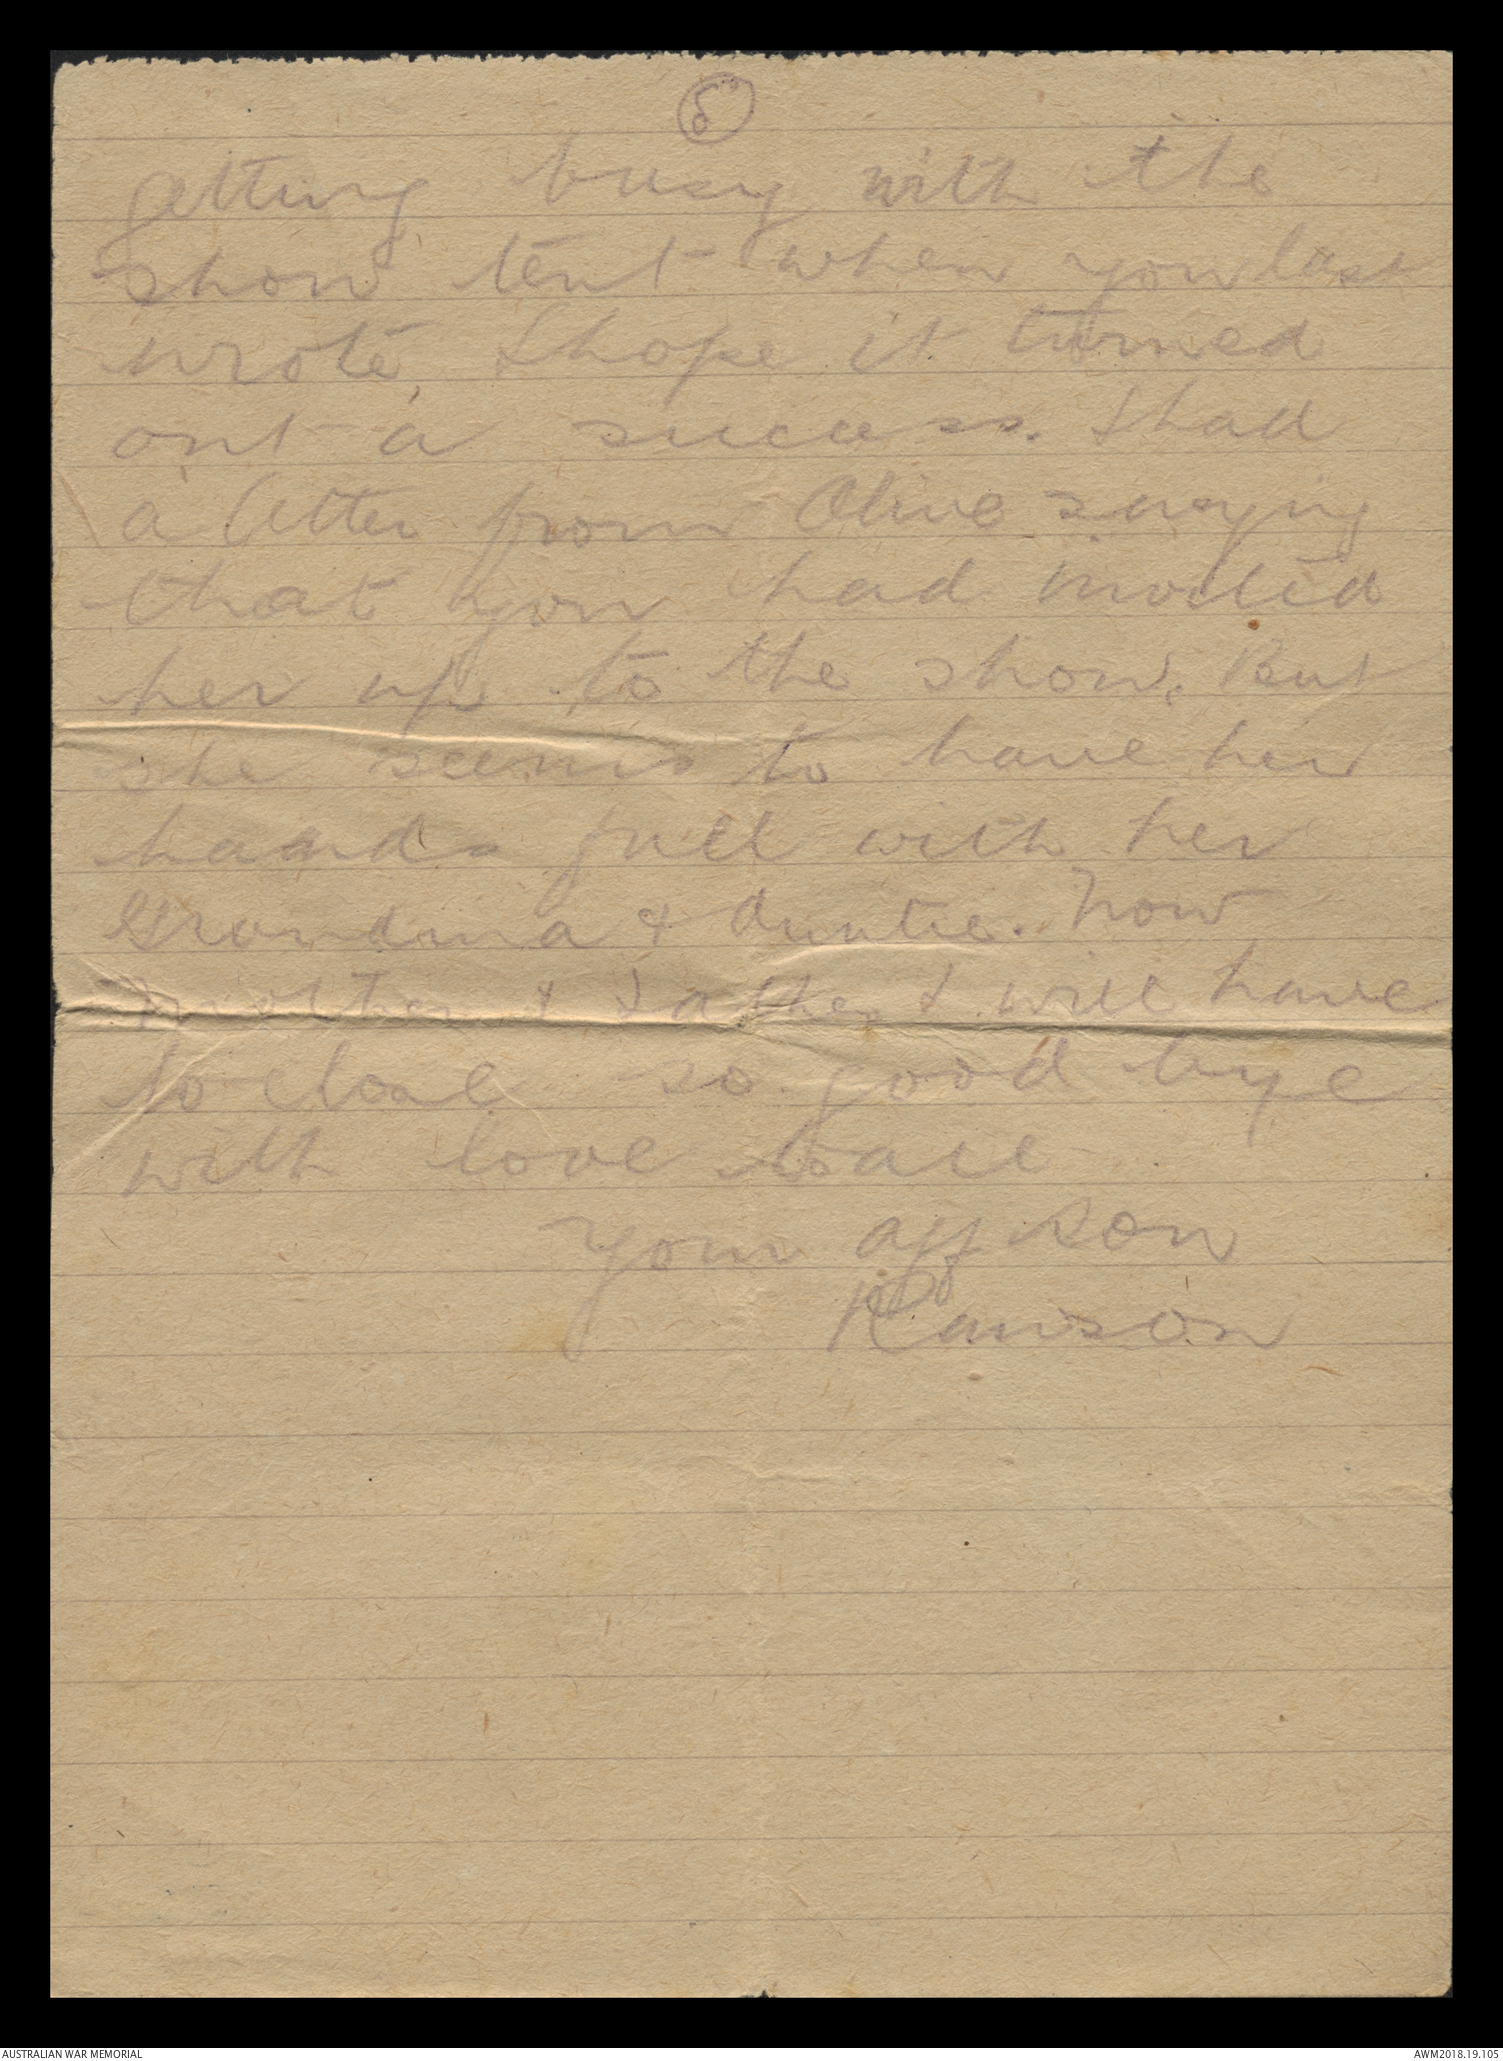 5
getting busy with the
show tent when you last
wrote, I hope it turned
out a success. I had
a letter from Olive saying
that you had invited
her up to the show. But
she seems to have her
hands full with her
Grandma & Auntie. Now
Mother & Father I will have
to close so good bye
with love to all
Your aff son
Rawson
AUSTRALIAN WAR MEMORIAL
AWM2018.19.105